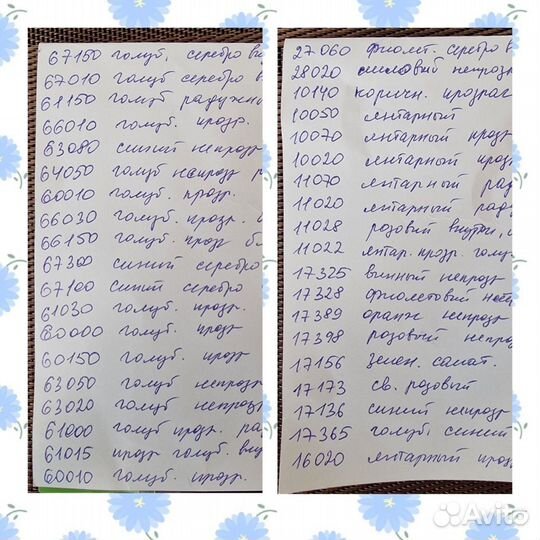 67150 голуб. серебро
67010 голуб серебро
61150 голуб радужн
66010 голуб. прозр.
63080 синий непрозр
64050 голуб непрозр
60010 голуб. прозр.
66030 голуб. прозр.
66150 голуб. прозр
67300 синий серебро
67100 синий серебро
61030 голуб. прозр.
60000 голуб. прозр
60150 голуб. прозр
63050 голуб непрозр
63020 голуб непрозр
61000 голуб прозр. ра
61015 прозр голуб. вну
60010 голуб. прозр.
27060 фиолет. серебро в
28020 непрозр
10140 коричн. прозрач
10050 янтарный
10070 янтарный прозр
10020 янтарный проз
11070 янтарный рад
11020 янтарный рад
11028 розовый внутри,
11022 янтар. прозр. голу
17325 винный непрозр
17328 фиолетовый неп
17389 оранж непрозр
17398 розовый непро
17156 зелен. салат.
17173 св. розовый
17136 синий непрозр
17365 голуб. синий
16020 янтарный проз
Avito